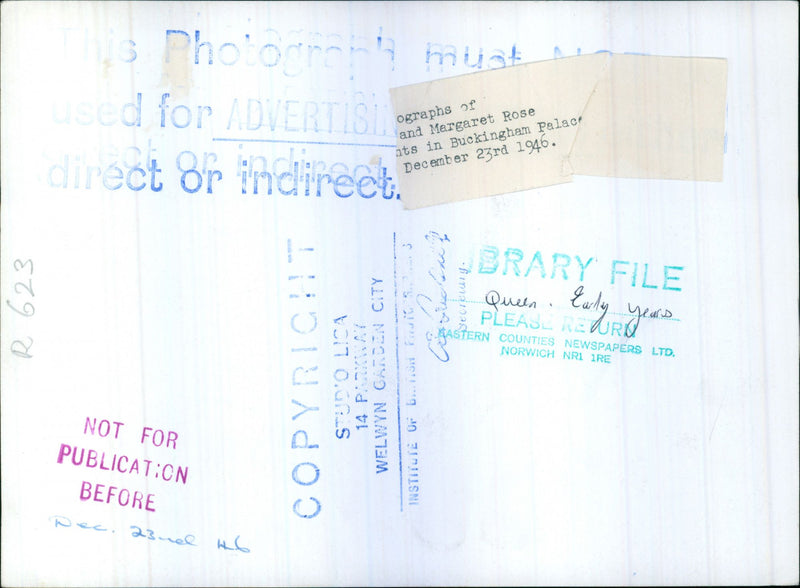 This Photograph must NOT
used for ADVERTISIN
direct or indirect.
ographs of
and Margaret Rose
nts in Buckingham Palace
December 23rd 1946.
R 623
COPYRIGHT
STUDIO LISA
14 PARKWAY
WELWYN GARDEN CITY
INSTITUTE OF BRITISH
Secretary.
IBRARY FILE
Queen. Early Years
PLEASE RETURN
EASTERN COUNTIES NEWSPAPERS LTD.
NORWICH NR1 1RE
NOT FOR
PUBLICATION
BEFORE
Dec. 23rd 46